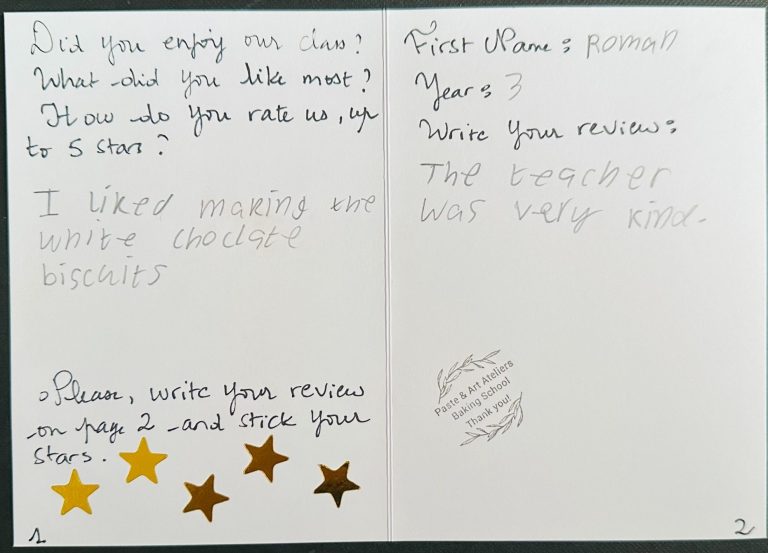 Did you enjoy our class?
What did you like most?
How do you rate us, up
to 5 stars?
I liked making the
white choclate
biscuits
Please, write your review
on page 2 and stick your
stars.
1
First Name: Roman
Year: 3
Write your review:
The teacher
was very kind.
Paste & Art Ateliers
Baking School
Thank you!
2